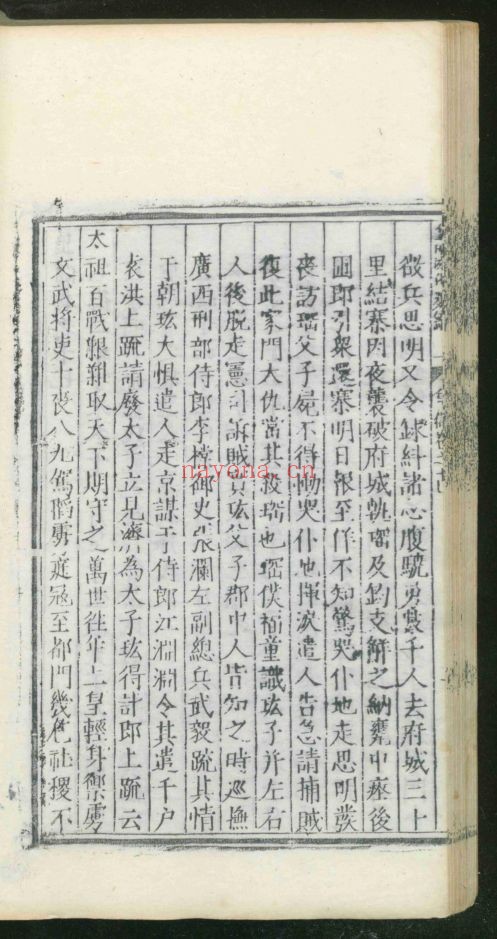 徵兵思明又令銾糾諸心腹驍勇數千人去府城三十
里結寨因夜襲破府城執琱及鈞支解之納甕中瘞後
圃即引衆還寨明日報至佯不知驚哭仆地走思明發
喪訪琱父子屍不得慟哭仆地揮淚遣人告急請捕賊
復此家門大仇當北投琱也琱僕福童識玹子并左右
人後脫走憲司訴賊實玹父子郡中人皆知之時巡撫
廣西刑部侍郎李棠御史張瀾左副總兵武毅疏其情
于朝玹大懼遣人走京謀于侍郎江淵淵令其遣千户
袁洪上疏請廢太子立見濟為太子玹得計即上疏云
太祖百戰艱難取天下期守之萬世往年上皇輕身禦虜
文武将吏十喪八九駕陷虜庭冦至都門幾危社稷不
nayona.cn